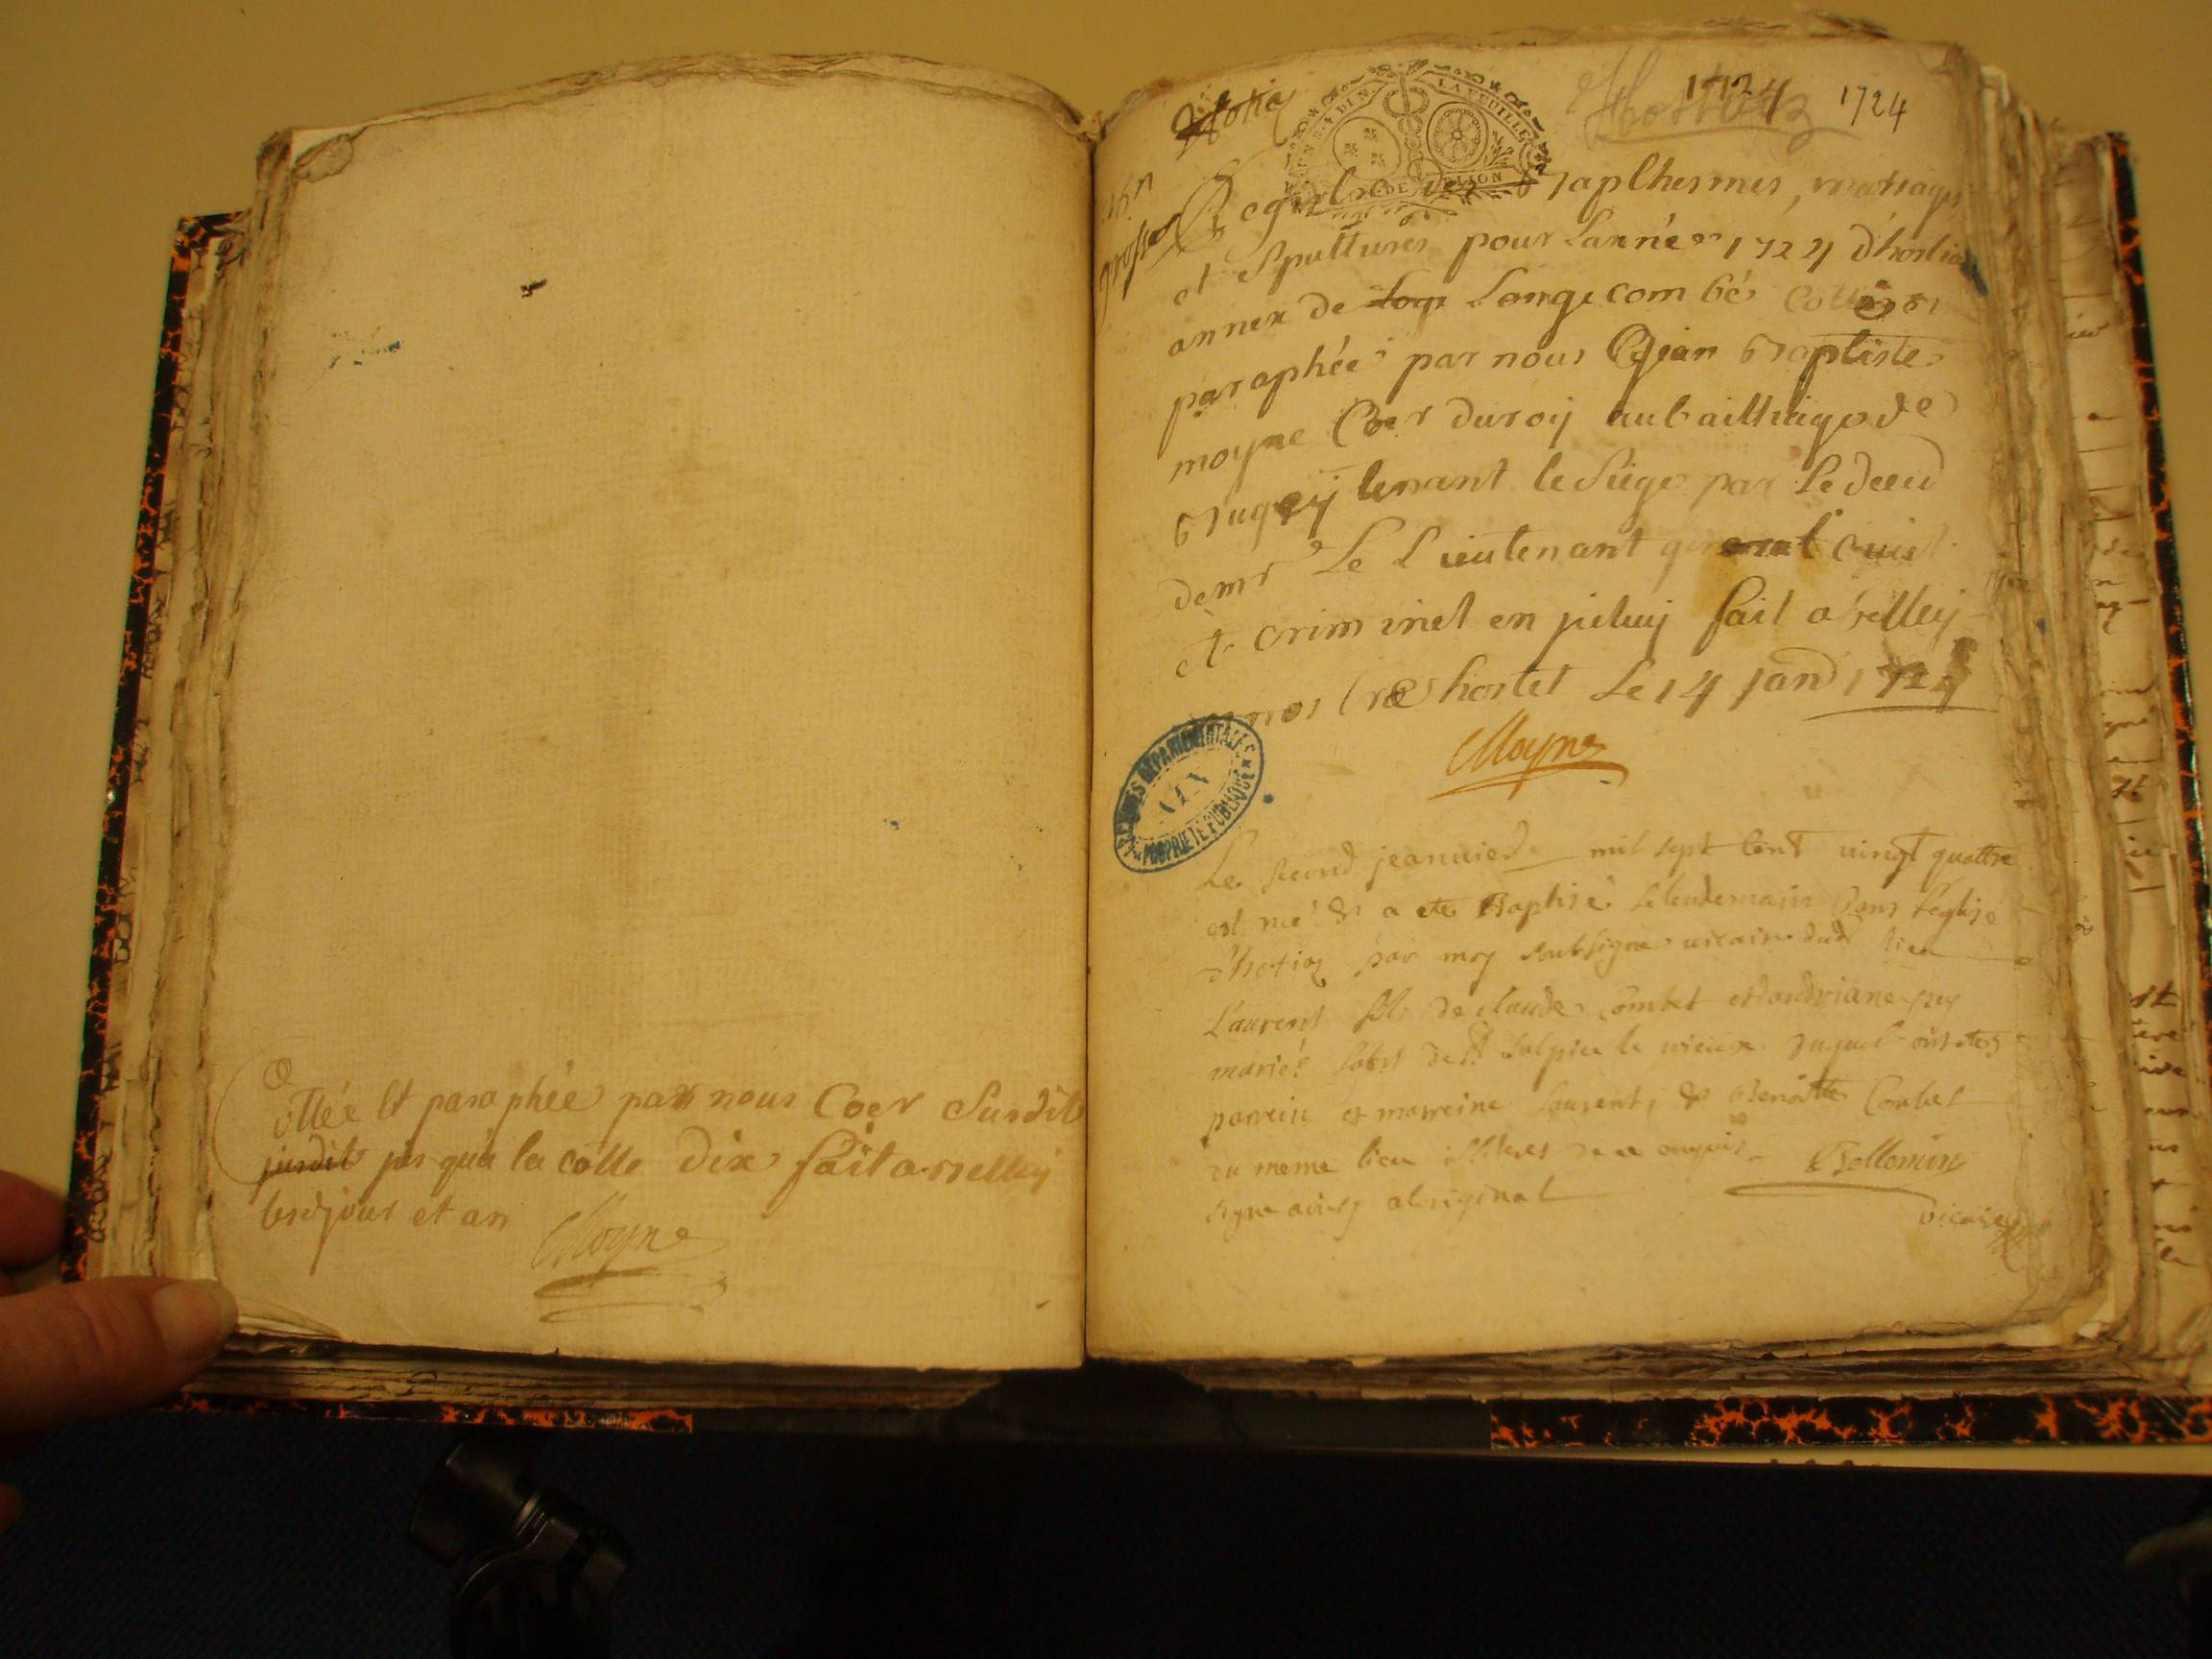 Cottée et paraphée par nous Coer Susdit
susdit jusqua la cotte dix fait a Belley
lesd jour et an
Moyne
hotia
1724
1724
LA FEUILLE
4 DEN
DE LION
Registre des Bapthesmes, mariages
et Spultures pour Lannée 1724 d'hostia
annex de Long Longecombé Cottée et
paraphée par nous Jean Baptiste
moyne Coer du roy au bailliage de
Bugey tenant le Siège par Le deced
de mr Le Lieutenant general Civil
et criminel en jceluy fait a Belley
hostel Le 14 janv 1724
Moyne
ARCHIVES DEPARTEMENTALES
AIN
PROPRIETE PUBLIQUE
Le second jeanvier mil sept Cent vingt quattre
est né & a ete Baptisé Le lendemain Dans l'eglise
d'hotia par moy soubsigné vicaire dud lieu
Laurent fils de claude Combet et dandriane
mariés de St Sulpice le vieux duquel ont etes
parrein et marreine Laurent, & Benoitte Combet
du meme lieu illiteres de ce enquis
Bollomin
signe ainsy a loriginal
vicaire